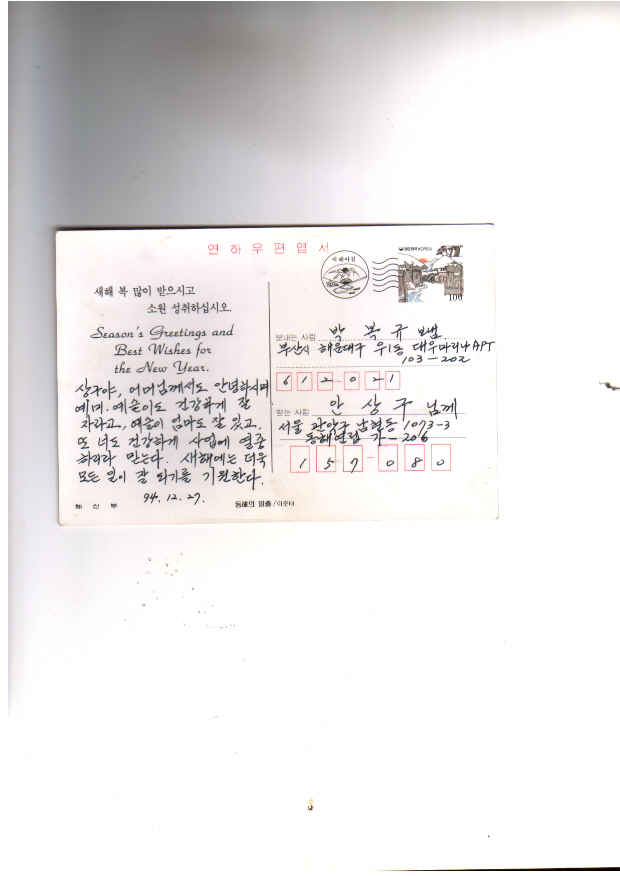 연하우편엽서
새해아침
대한민국 KOREA
100
새해 복 많이 받으시고
소원 성취하십시오.
Season's Greetings and
Best Wishes for
the New Year.
상구야, 어머님께서도 안녕하시며
예미. 예슬이도 건강하게 잘
자라고, 예슬이 엄마도 잘 있고.
또 너도 건강하게 사업에 열중
하리라 믿는다. 새해에는 더욱
모든 일이 잘 되기를 기원한다.
94. 12. 27.
체신부
동해의 일출/이준태
보내는 사람 박복규
부산시 해운대구 우1동 대우마리나 APT
103-202
612-021
받는 사람 안상구 님께
서울 관악구 남현동 1073-3
동해연립 가-206
157-080